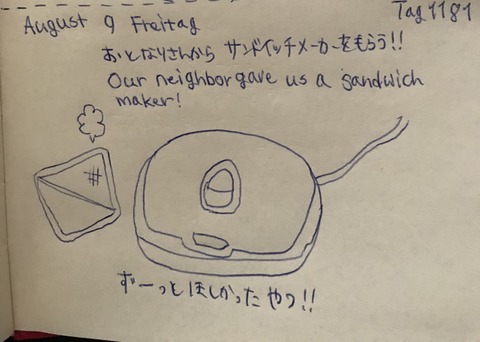 August 9 Freitag
Tag 1181
おとなりさんから サンドイッチメーカーをもらう!!
Our neighbor gave us a sandwich
maker!
ずーっとほしかったやつ!!